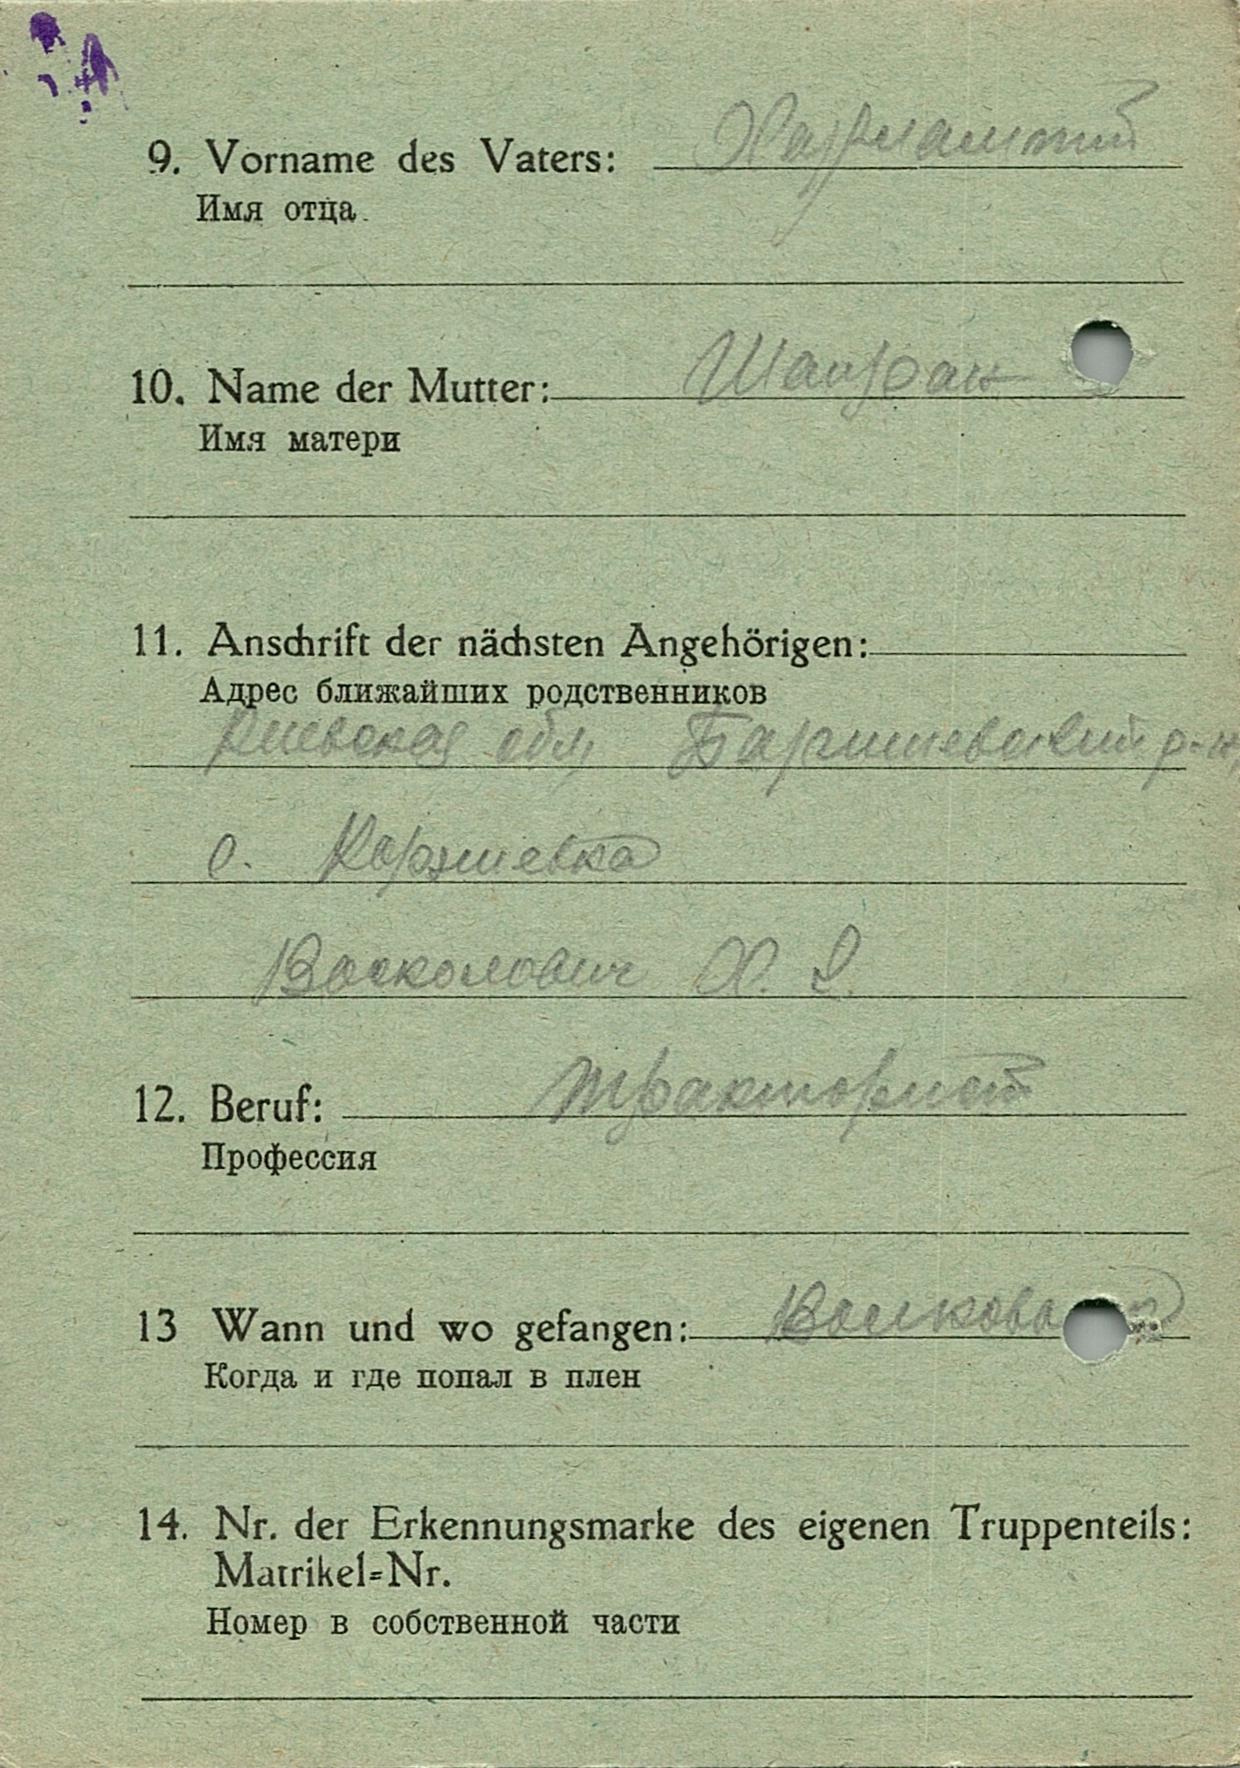 9. Vorname des Vaters:
Имя отца
10. Name der Mutter: Шапран
Имя матери
11. Anschrift der nächsten Angehörigen:
Адрес ближайших родственников
Киевская обл, Барышевский р-н,
с. Коржевка
Восколович Х. Е.
12. Beruf: тракторист
Профессия
13 Wann und wo gefangen:
Когда и где попал в плен
14. Nr. der Erkennungsmarke des eigenen Truppenteils:
Matrikel=Nr.
Номер в собственной части